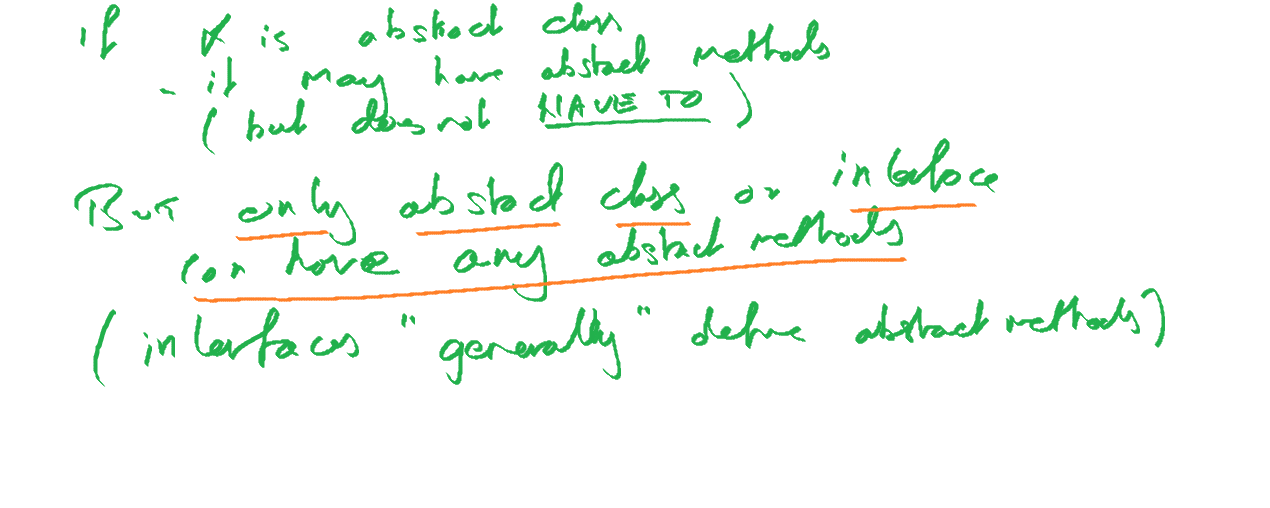 If X is abstract class
- it may have abstract methods
(but does not HAVE TO)
But only abstract class or interface
can have any abstract methods
(interfaces "generally" define abstract methods)